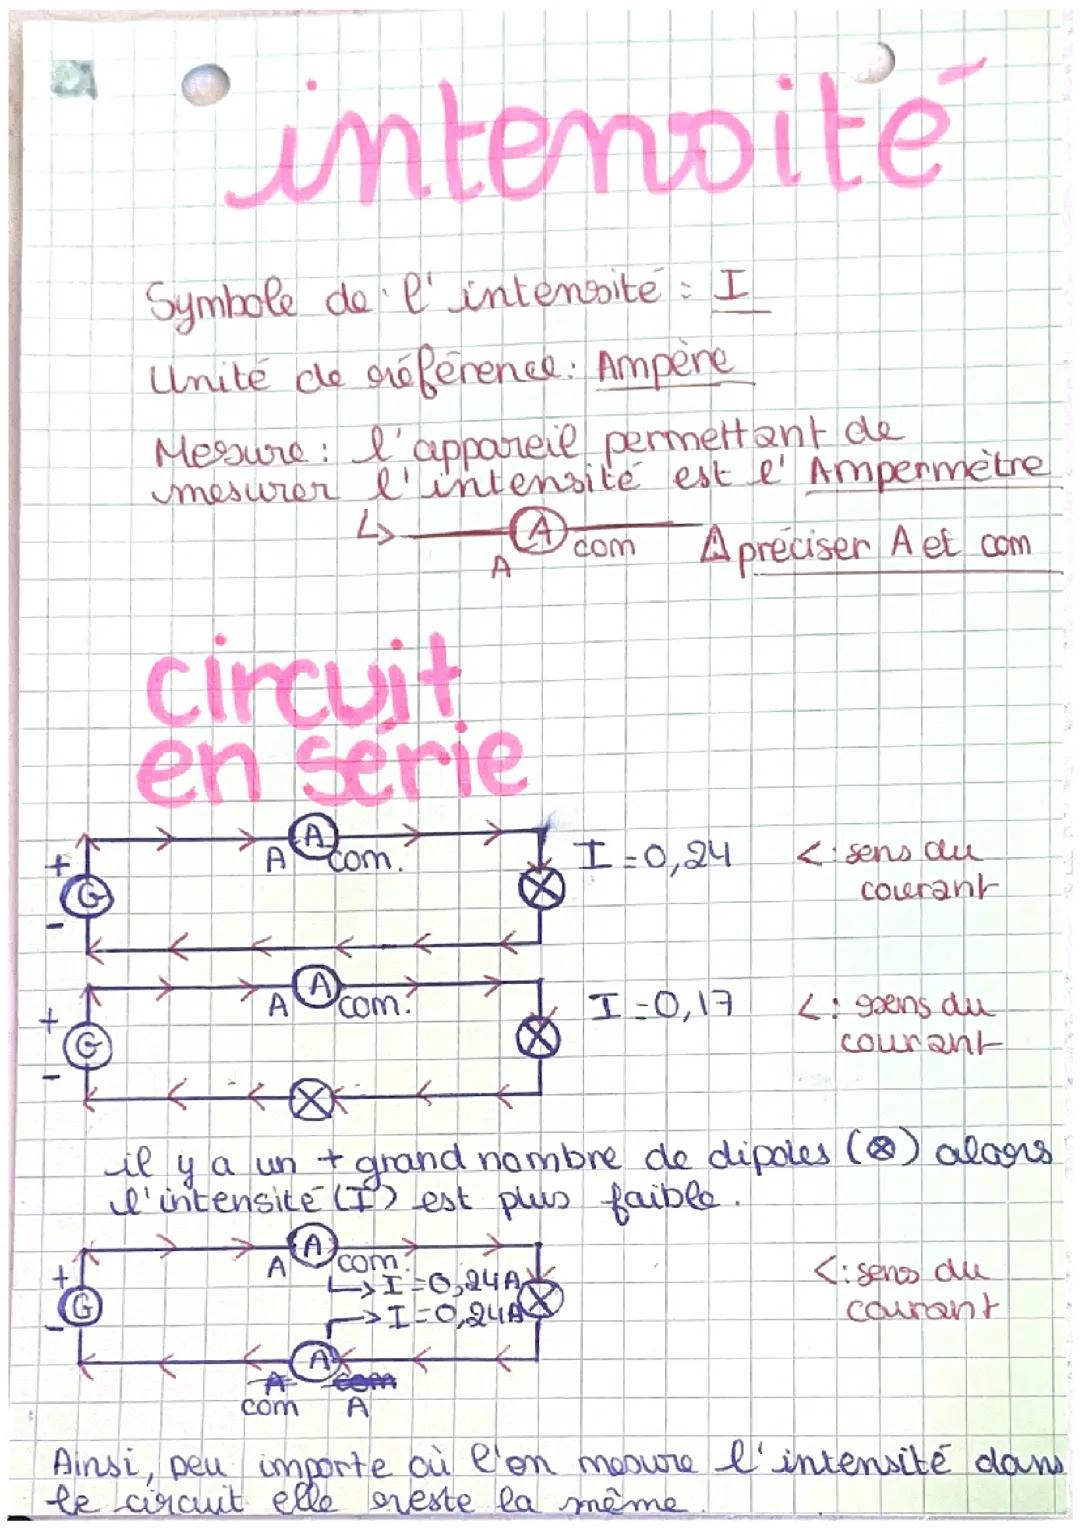 intensité
Symbole de l'intensité : I
Unité de référence : Ampère
Mesure : l'appareil permettant de
mesurer l'intensité est l'Ampermètre
A
A com A préciser A et com
circuit
en série
A
+ A com. I=0,24 <: sens du
G courant
-
A
+ A com. I=0,17 <: sens du
G courant
-
il y a un + grand nombre de dipoles (⊗) alors
l'intensité (I) est plus faible.
A
A com.
+ ↳I=0,24A <: sens du
G →I=0,24A courant
-
A
A com
com A
Ainsi, peu importe où l'on mesure l'intensité dans
le circuit elle reste la même.